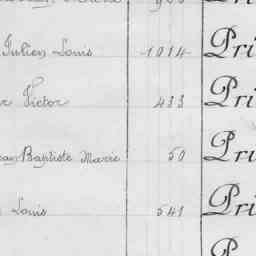 Julien Louis 1014 Pri
Victor 433 Pri
Baptiste Marie 50 Pri
Louis 541 Pri